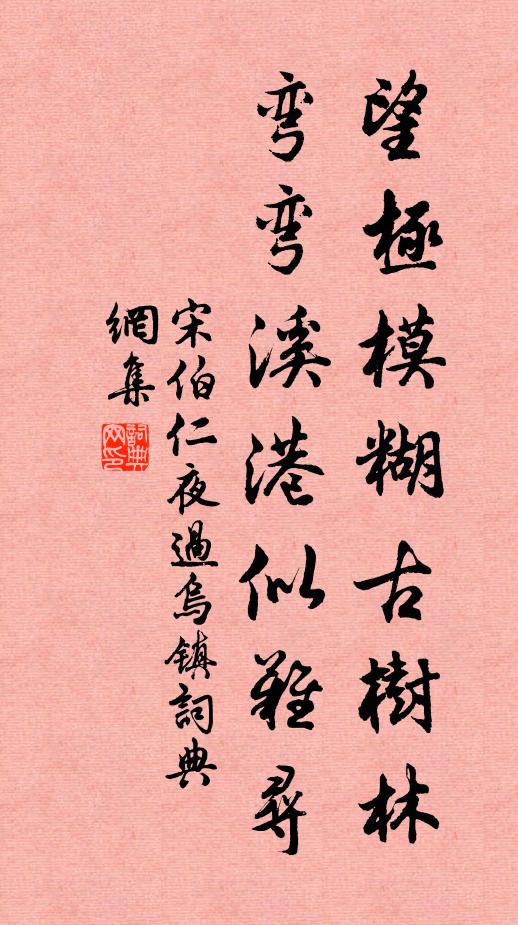 望極模糊古樹林
彎彎溪港似難尋
宋伯仁夜過烏镇詞典
網集
詞典网印